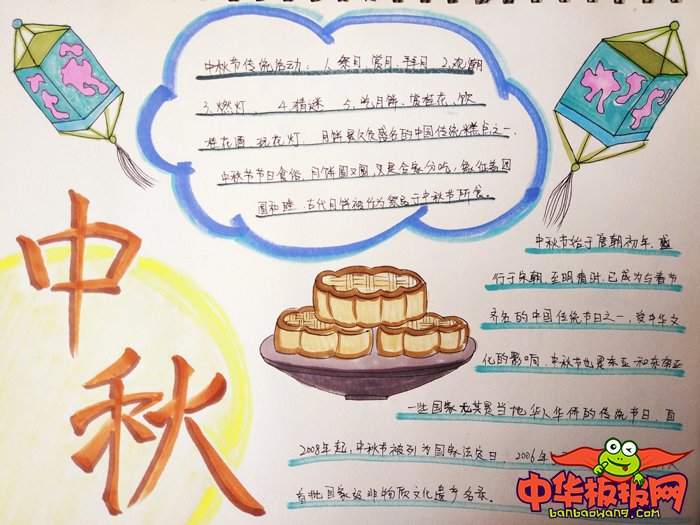 中秋节传统活动：1.祭月、赏月、拜月 2.观潮
3.燃灯、 4.猜谜 5.吃月饼、赏桂花、饮
桂花酒 玩花灯、月饼是久负盛名的中国传统糕点之一
中秋节节日食俗、月饼圆又圆,又是合家分吃,象征着团
圆和睦.古代月饼被作为祭品于中秋节所食。
中秋
中秋节始于唐朝初年,盛
行于宋朝.至明清时.已成为与春节
齐名的中国传统节日之一,受中华文
化的影响,中秋节也是东亚和东南亚
一些国家尤其是当地华人华侨的传统节日 自
2008年起,中秋节被列为国家法定日.2006年
首批国家级非物质文化遗产名录.
中华板报网
banbaowang.com